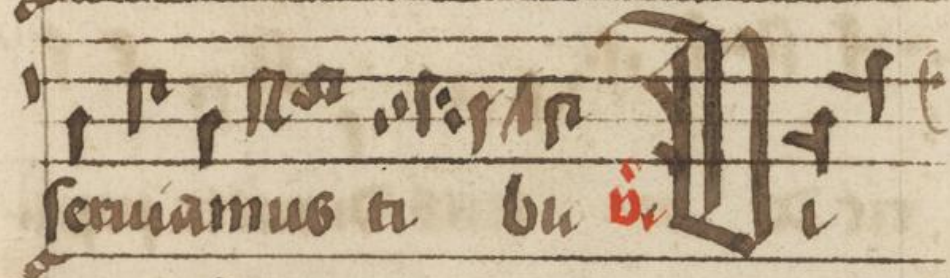 seruiamus ti bu v. Ni